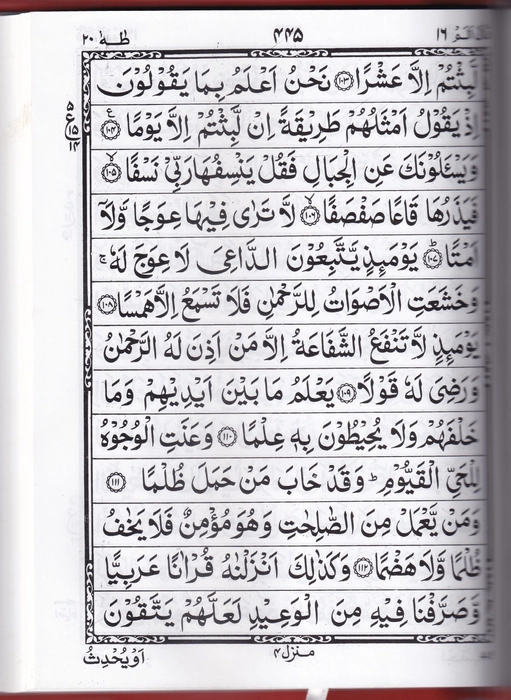 طٰهٰ ٢٠ ٤٤٥ ١٦
لَّبِثْتُمْ اِلَّا عَشْرًا ﴿١٠٣﴾ نَحْنُ اَعْلَمُ بِمَا يَقُوْلُوْنَ
اِذْ يَقُوْلُ اَمْثَلُهُمْ طَرِيْقَةً اِنْ لَّبِثْتُمْ اِلَّا يَوْمًا ﴿١٠٤﴾ ع
وَيَسْـَٔلُوْنَكَ عَنِ الْجِبَالِ فَقُلْ يَنْسِفُهَا رَبِّيْ نَسْفًا ﴿١٠٥﴾
فَيَذَرُهَا قَاعًا صَفْصَفًا ﴿١٠٦﴾ لَّا تَرٰى فِيْهَا عِوَجًا وَّلَآ
اَمْتًا ﴿١٠٧﴾ يَوْمَئِذٍ يَّتَّبِعُوْنَ الدَّاعِيَ لَا عِوَجَ لَهٗ ج
وَخَشَعَتِ الْاَصْوَاتُ لِلرَّحْمٰنِ فَلَا تَسْمَعُ اِلَّا هَمْسًا ﴿١٠٨﴾
يَوْمَئِذٍ لَّا تَنْفَعُ الشَّفَاعَةُ اِلَّا مَنْ اَذِنَ لَهُ الرَّحْمٰنُ
وَرَضِيَ لَهٗ قَوْلًا ﴿١٠٩﴾ يَعْلَمُ مَا بَيْنَ اَيْدِيْهِمْ وَمَا
خَلْفَهُمْ وَلَا يُحِيْطُوْنَ بِهٖ عِلْمًا ﴿١١٠﴾ وَعَنَتِ الْوُجُوْهُ
لِلْحَيِّ الْقَيُّوْمِ ط وَقَدْ خَابَ مَنْ حَمَلَ ظُلْمًا ﴿١١١﴾
وَمَنْ يَّعْمَلْ مِنَ الصّٰلِحٰتِ وَهُوَ مُؤْمِنٌ فَلَا يَخٰفُ
ظُلْمًا وَّلَا هَضْمًا ﴿١١٢﴾ وَكَذٰلِكَ اَنْزَلْنٰهُ قُرْاٰنًا عَرَبِيًّا
وَّصَرَّفْنَا فِيْهِ مِنَ الْوَعِيْدِ لَعَلَّهُمْ يَتَّقُوْنَ
منزل ٤
اَوْ يُحْدِثُ